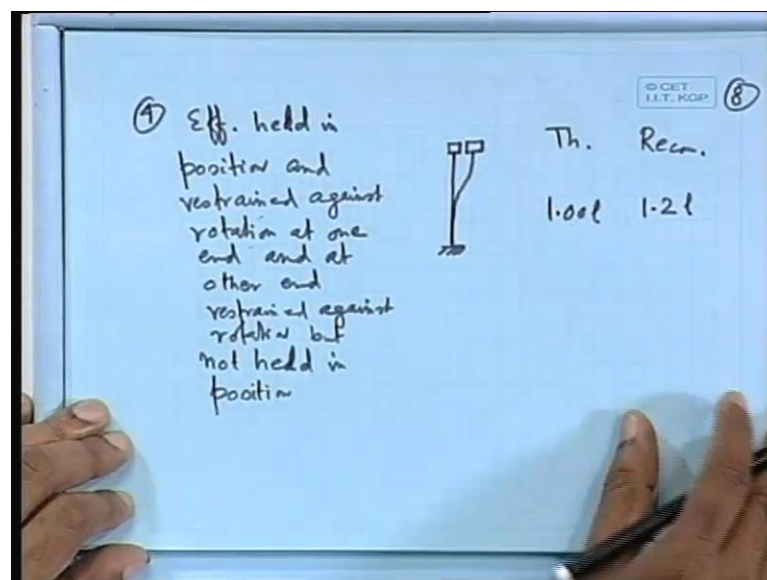 © CET
I.I.T. KGP
8
4 Eff. held in
position and
restrained against
rotation at one
end and at
other end
restrained against
rotation but
not held in
position
Th. Recm.
1.00l 1.2l